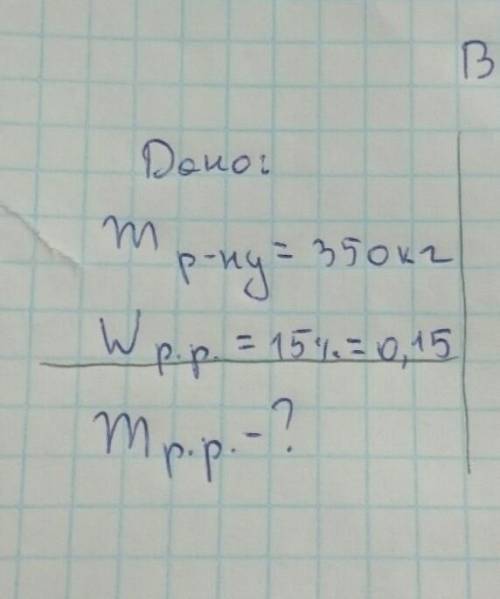 В
Дано:
m р-ну = 350кг
W р.р. = 15% = 0,15
m р.р. - ?